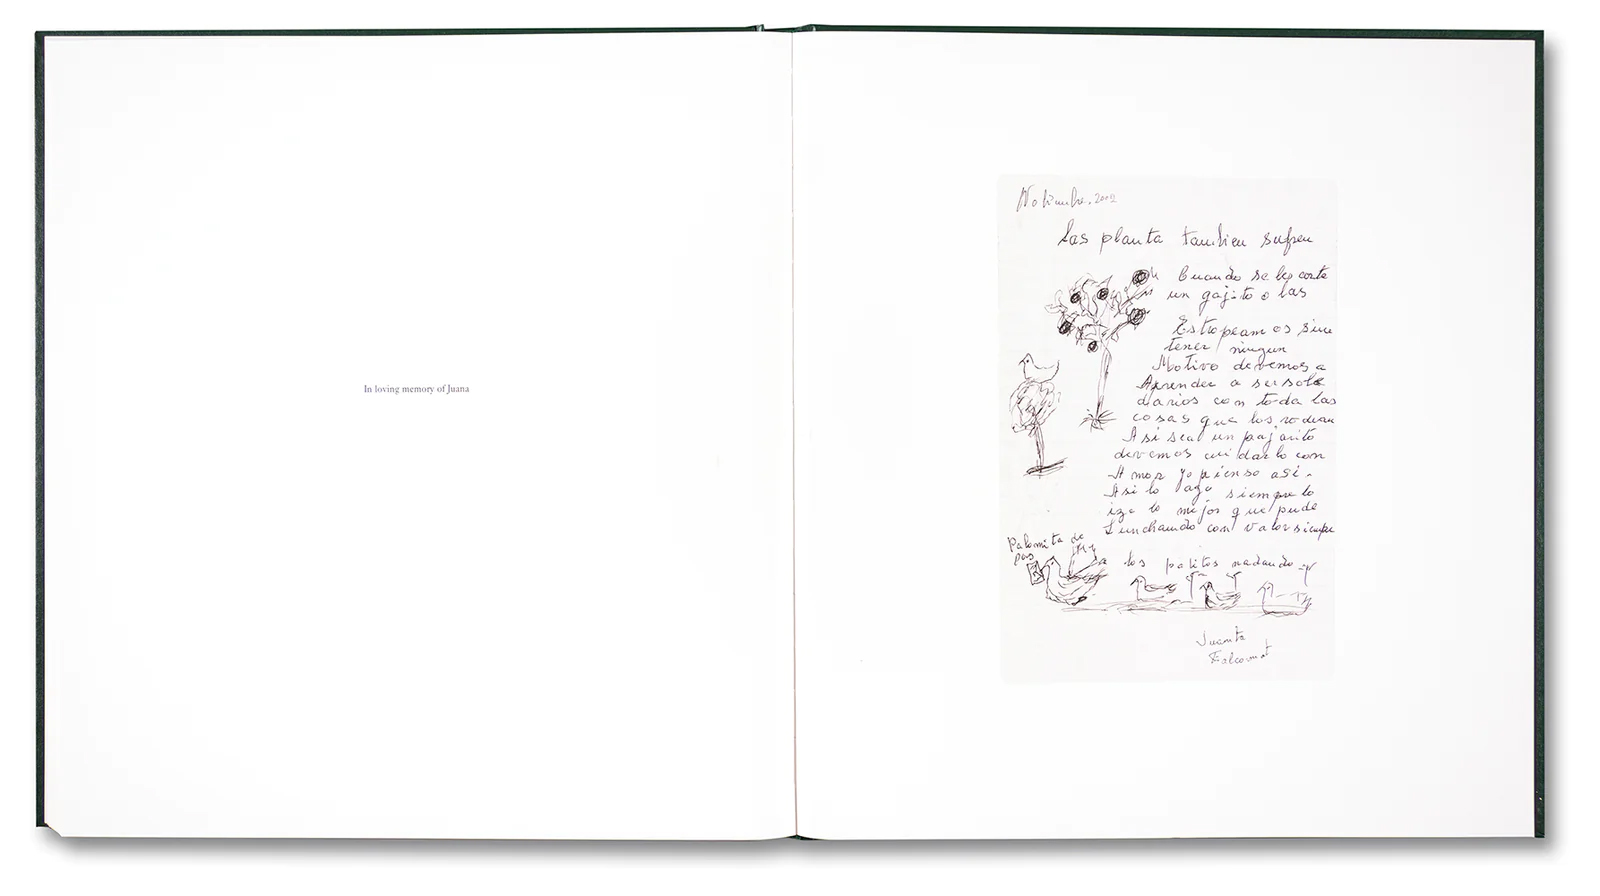 In loving memory of Juana
Noviembre. 2002
Las planta tambien sufren
Cuando se les corte
un gajito o las
Estropeamos sin
tener ningun
Motivo devemos a
Aprender a ser sole
darios con toda las
cosas que los rodean
Asi sea un pajarito
devemos cuidarlo con
Amor yo pienso asi.
Asi lo ago siempre lo
ize lo mejor que pude
Lunchando con valor siempre
Palomita de
pas
los patitos nadando
Juanita